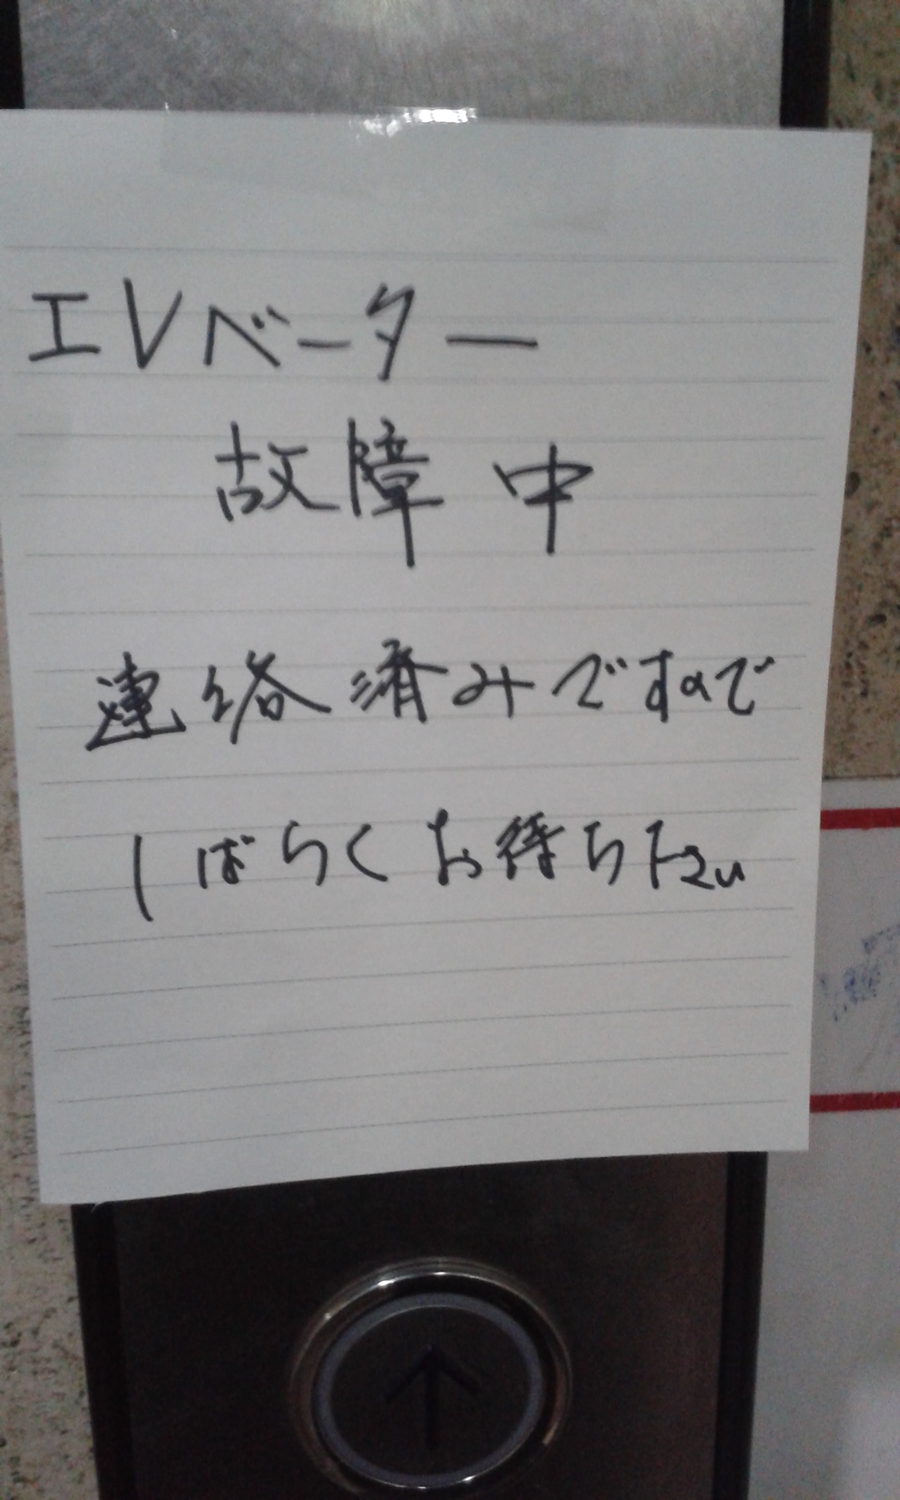 エレベーター
故障中
連絡済みですので
しばらくお待ち下さい